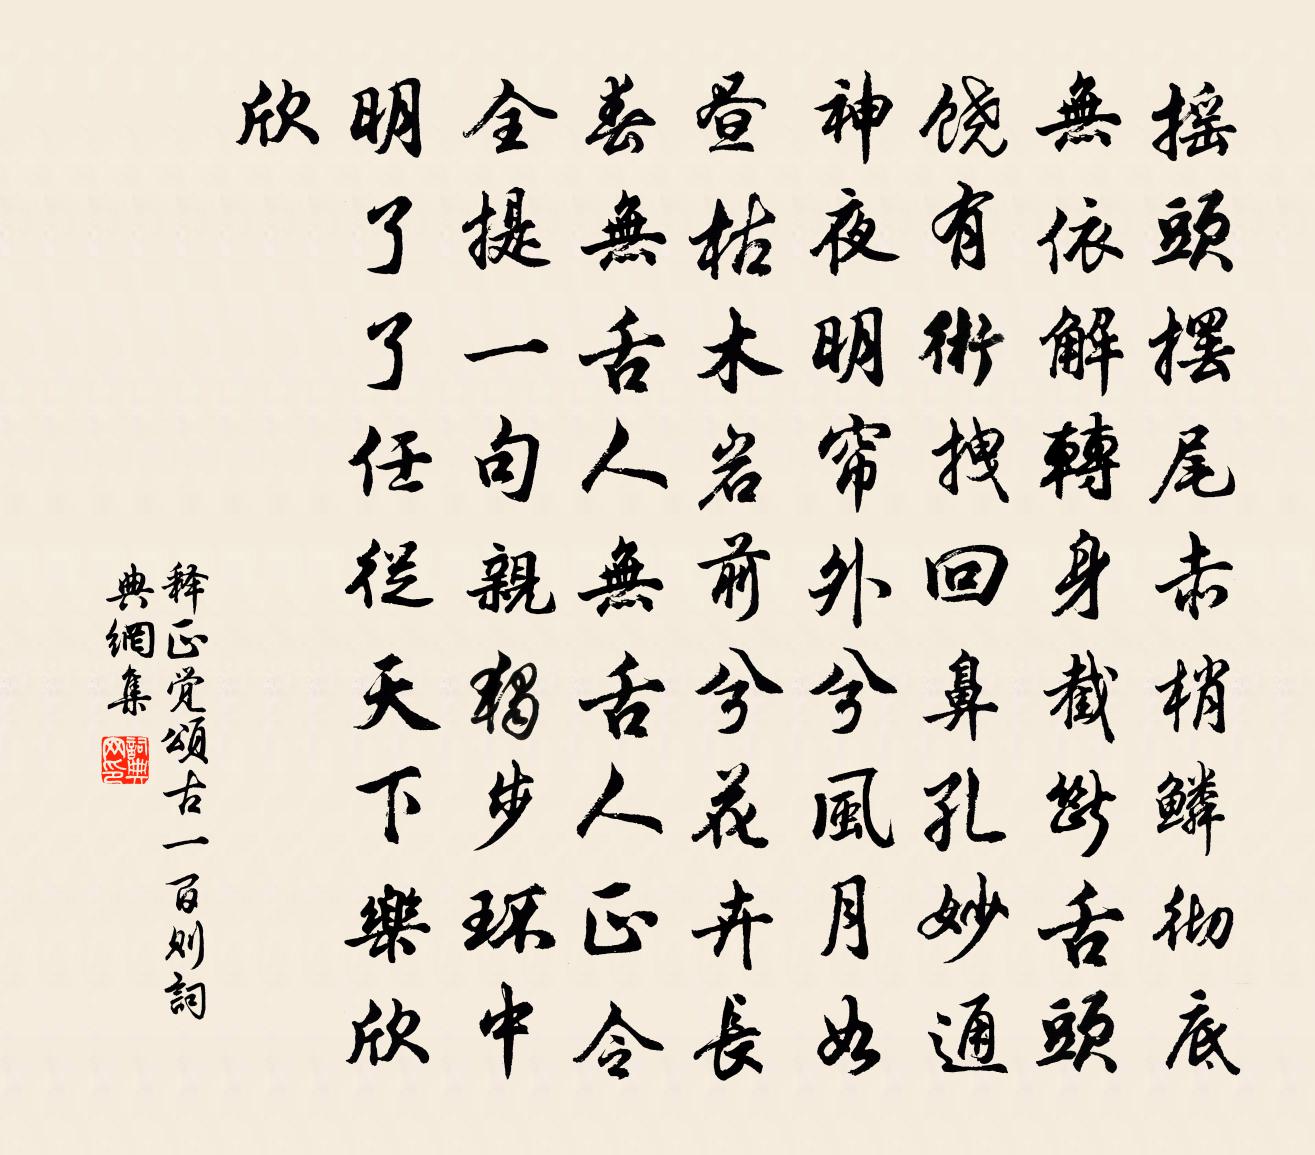 摇頭擺尾赤梢鳞彻底
無依解轉身截斷舌頭
饶有術拽回鼻孔妙通
神夜明帘外兮風月如
昼枯木岩前兮花卉長
春無舌人無舌人正令
全提一句親獨步環中
明了了任從天下樂欣
欣
释正觉頌古一百则詞
典網集
詞典网印